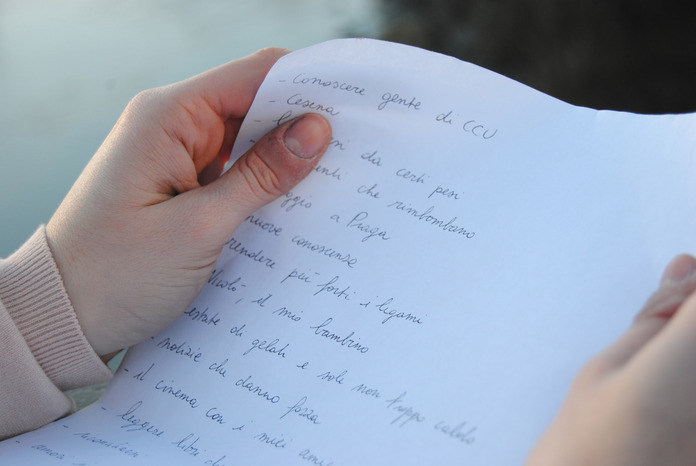 - conoscere gente di CCU
- Cesena
da certi pesi
che rimbombano
a Praga
nuove conoscenze
rendere più forti i legami
il mio bambino
estate di gelati e sole non troppo caldo
- notizie che danno forza
- il cinema con i miei amici
- leggere libri